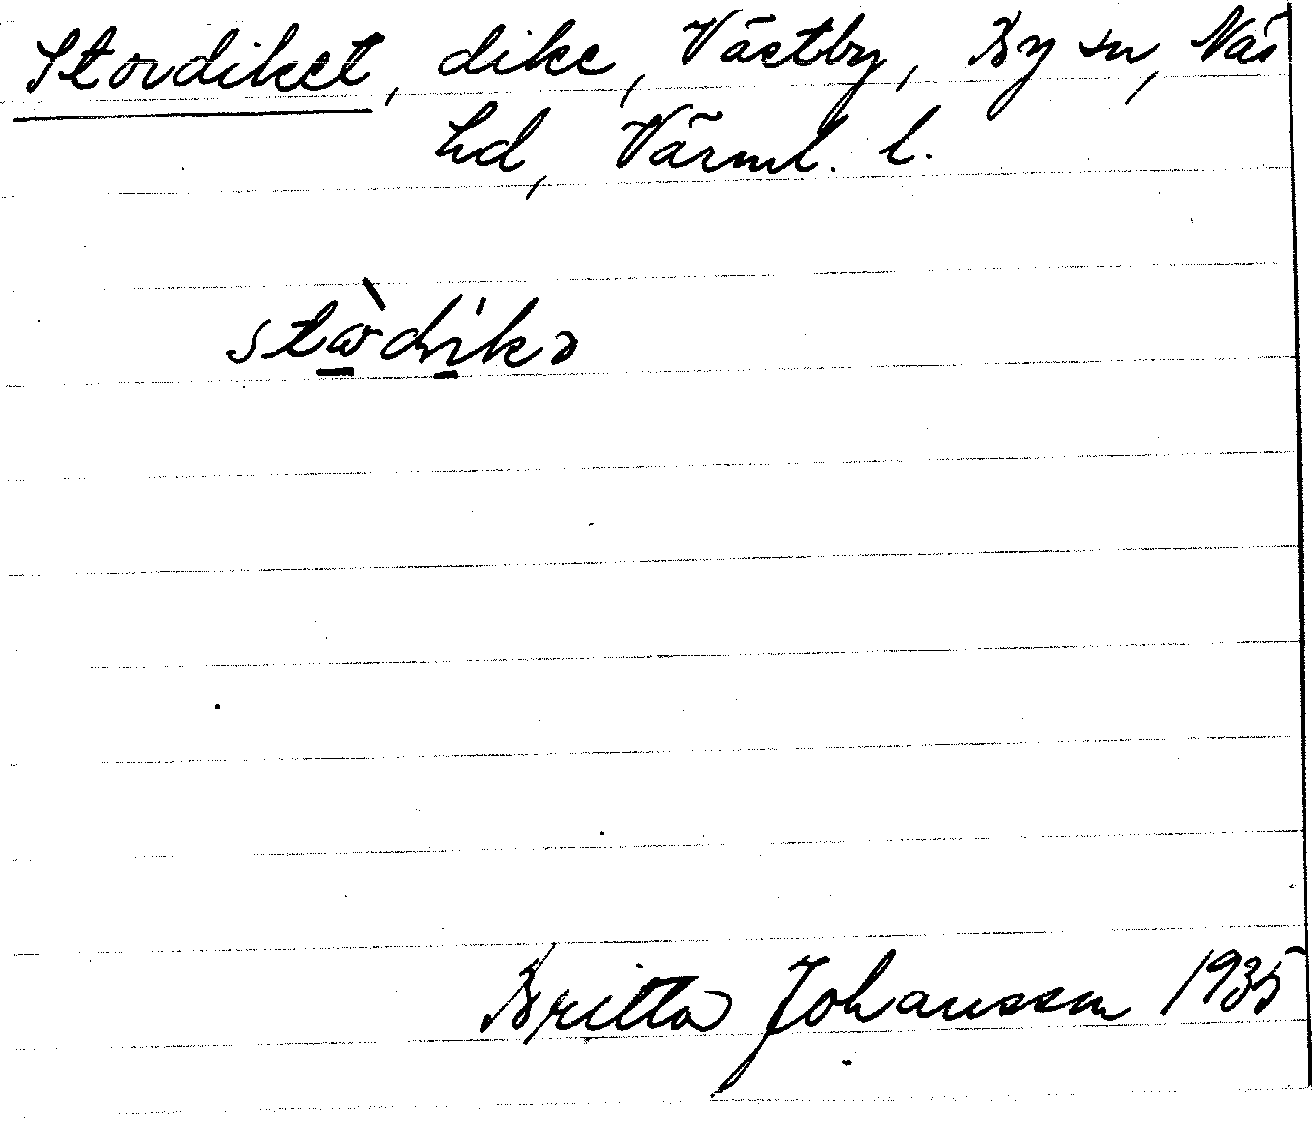 Stordiket, dike, Västby, By sn, Näs
hd, Värml. l.
Britta Johansson 1935